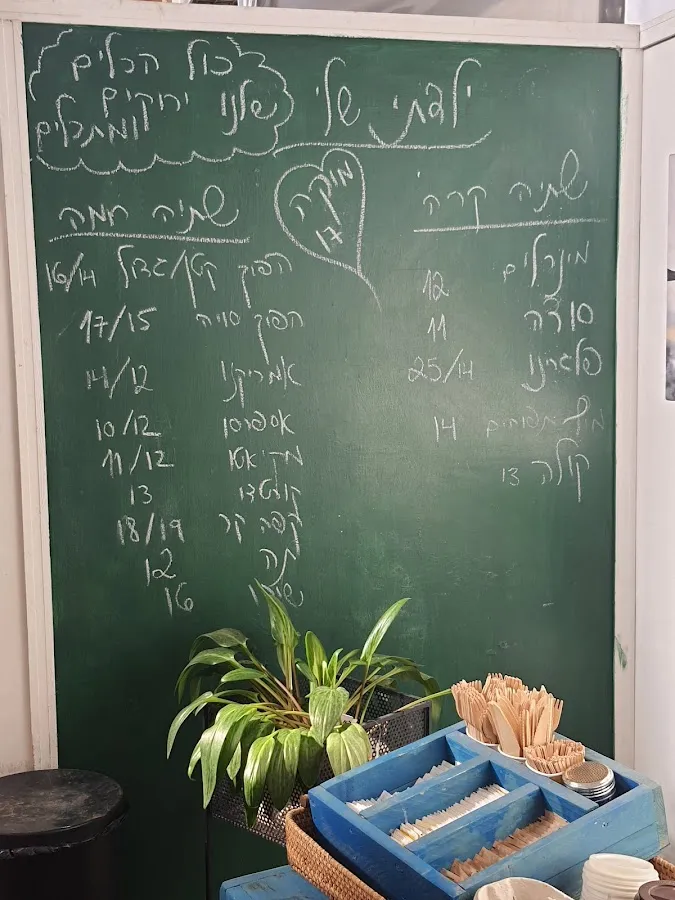 יפתי שלי
כול הכלים
שלנו ירוקים
ומתכלים
מוקה
17
שתיה קרה
מינרלים 12
סודה 11
פלגרינו 25/14
מיץ תפוחים 14
קולה 13
שתיה חמה
הפוק קטן/גדול 16/14
הפוק סויה 17/15
אמריקנו 14/12
אספרסו 10/12
מקיאטו 11/12
קורטדו 13
קפה קר 18/19
תה 12
16